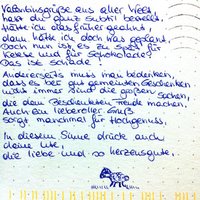 Valentinsgrüße aus aller Welt
hast du ganz subtil bestellt.
hätte ich das früher geahnt
dann hätte ich doch was geplant.
Doch nun ist es zu spät für
Kekse und für Schokolade?
Das ist schade!
Andererseits muss man bedenken,
dass es bei gut gemeinten Geschenken
nicht immer sind die großen Sachen,
die dem Beschenkten Freude machen,
Auch ein liebevoller Gruß
sorgt manchmal für Hochgenuss.
In diesem Sinne drücke auch
deine Ute,
die liebe und so herzensgute.